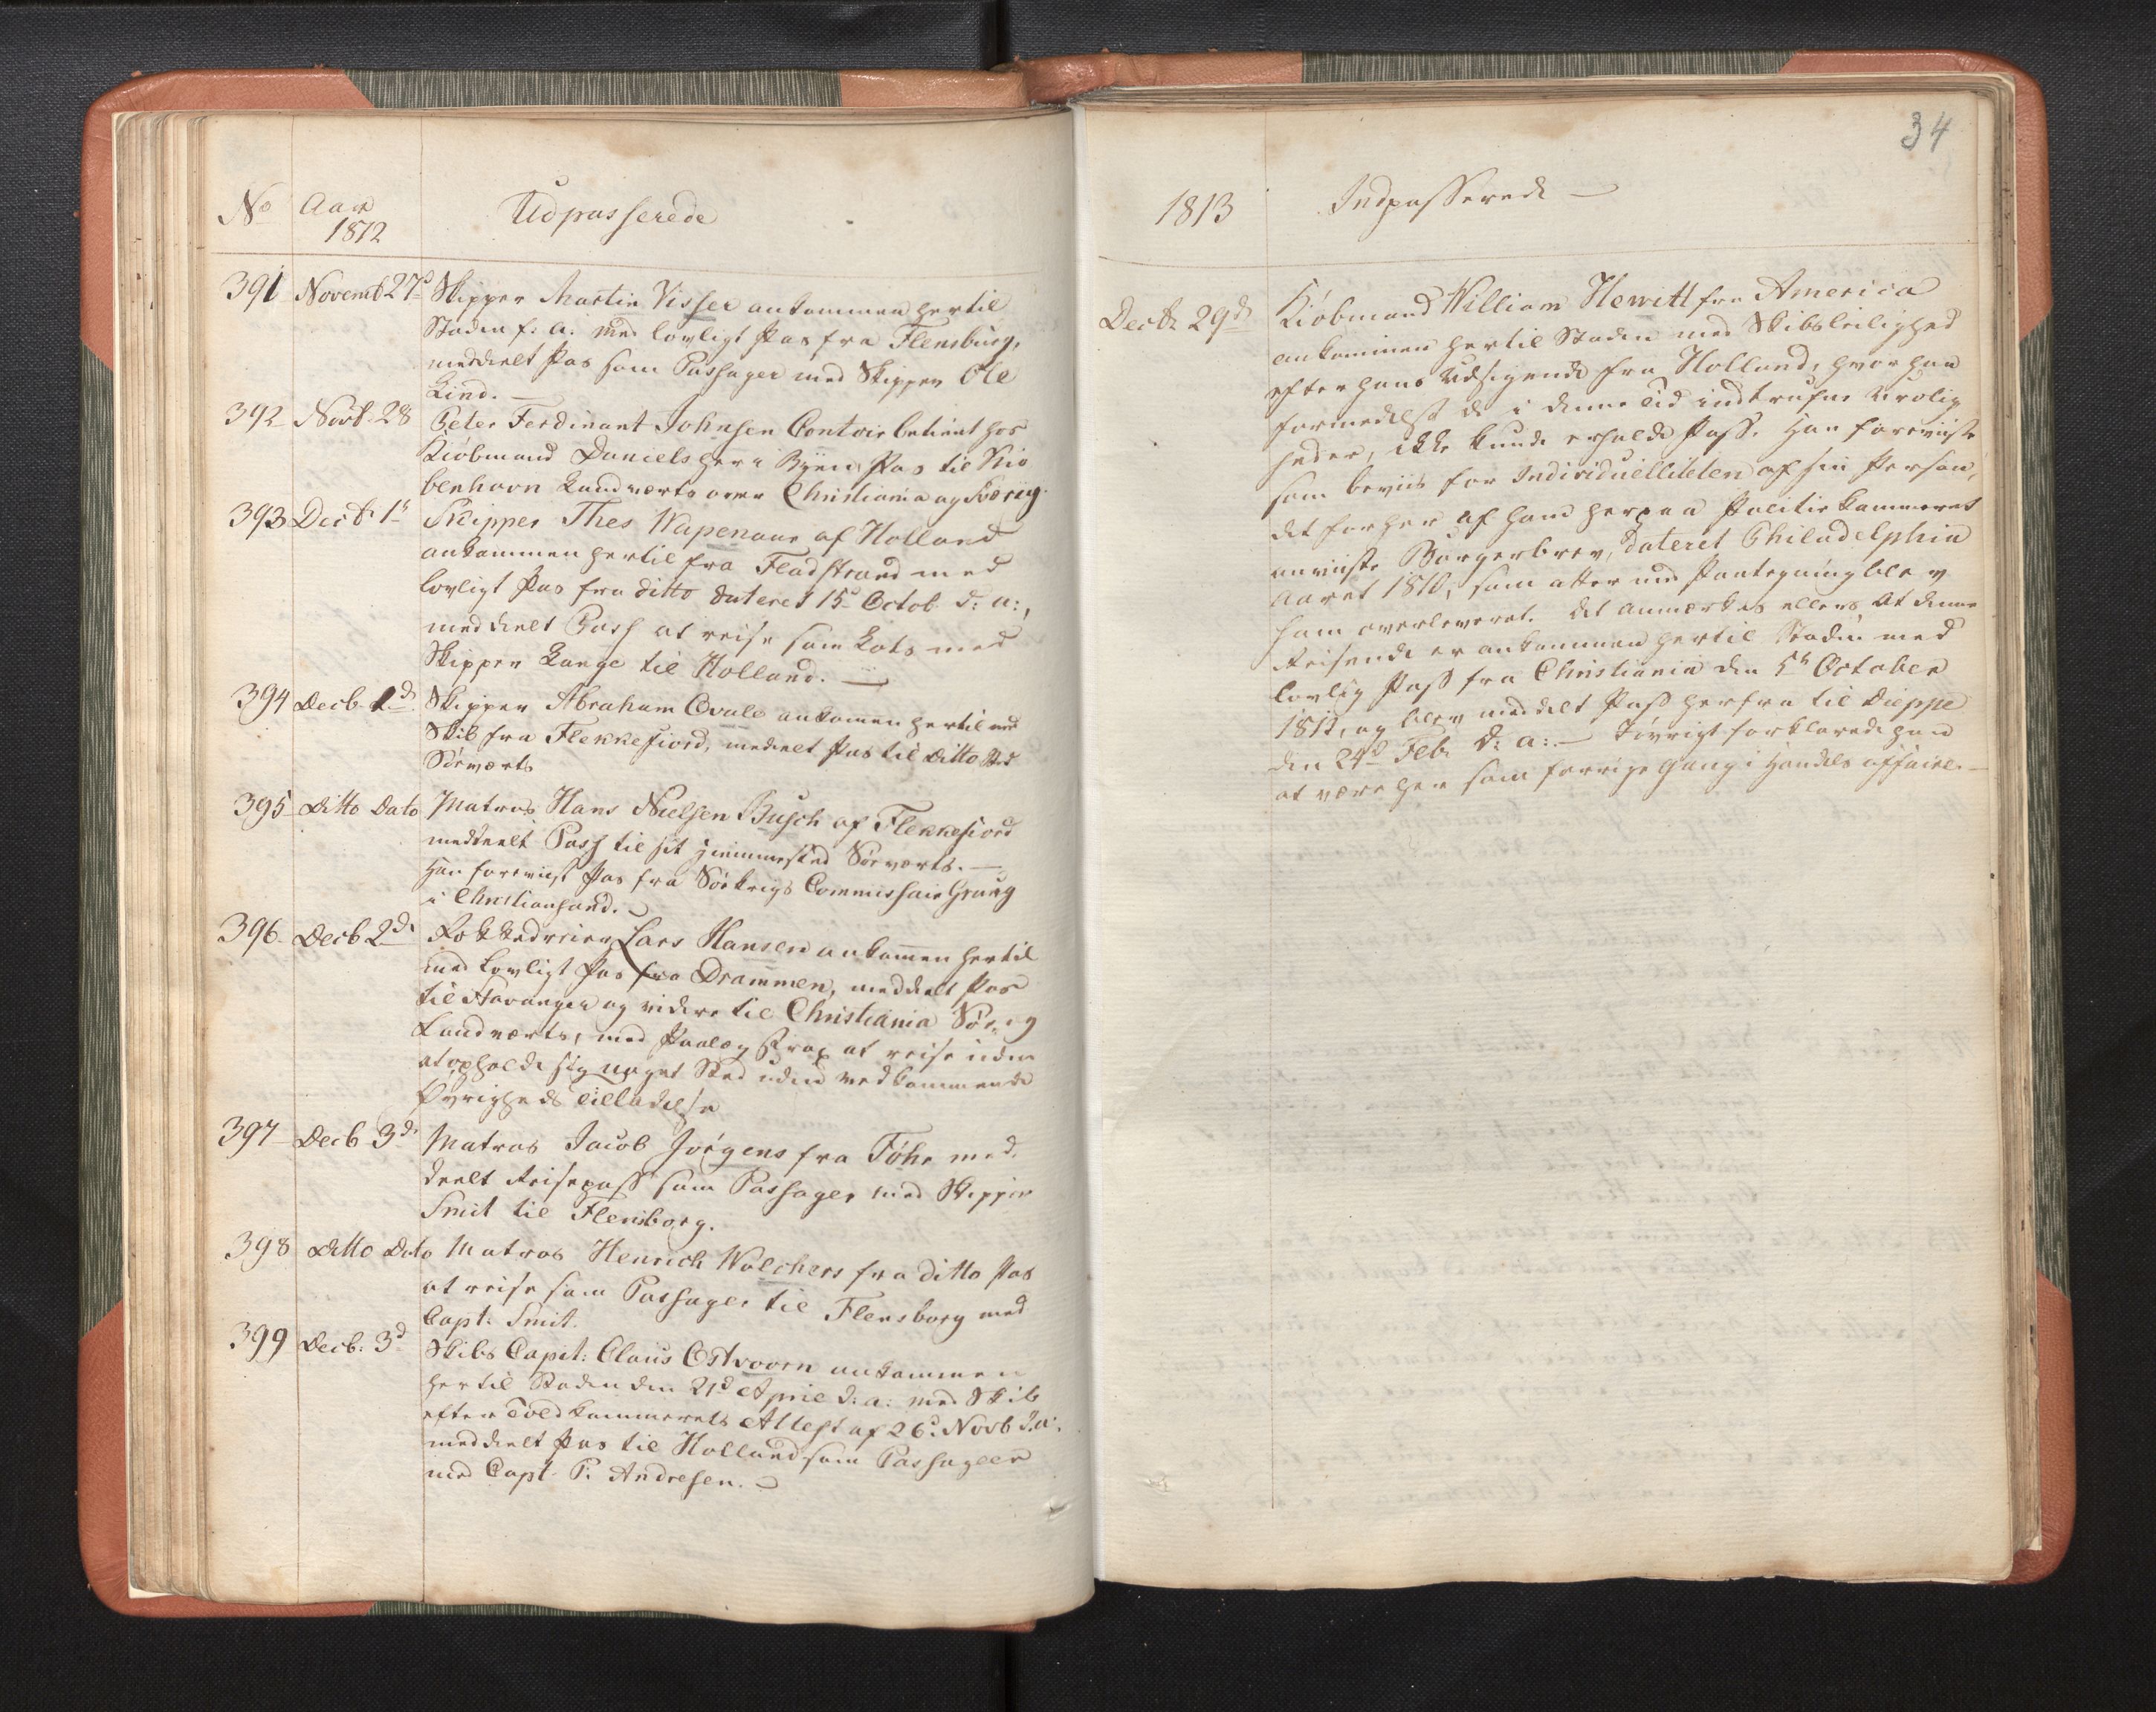 No Aar Udpasserede
1812
391 Novemb 27d Skipper Martin Visser ankommen hertil
Staden f: a: med lovligt Pas fra Flensburg,
meddeelt Pas som Passager med Skipper Ole
Lind. —
392 Novb. 28 Peter Ferdinant Johnsen Contoir betient hos
Kiöbmand Daniels her i Byen, Pas til Kiö
benhavn Landværts over Christiania og Sverig
393 Decb. 1s Skipper Thes Wapenaus af Holland
ankommen hertil fra Fladstrand med
lovligt Pas fra ditto dateret 15d Octob d: a:,
meddeelt Pass at reise som Lots med
Skipper Lange til Holland. —
394 Decb. 1d Skipper Abraham Ovale ankomen hertil med
Skib fra Flekkefiord, medeelt Pas til ditto Sted
Söeværts
395 Ditto Dato Matros Hans Nielsen Busch af Flekkefiord
meddeelt Pass til sit Hiemmested Söeværts. —
Han foreviist Pas fra Söekrigs Commissair Graug
i Christiansand. —
396 Decb 2d Lars Hansen ankomen hertil
med Lovligt Pas fra Drammen, meddeelt Pas
til Stavanger og videre til Christiania Söe og
Landværts, med Paalæg strax at reise uden
at opholde sig noget Sted uden vedkommende
Øvrigheds Tilladelse
397 Decb 3d Matros Jacob Jörgens fra Föhr med-
deelt Reisepass som Passager med Skipper
Smit til Flensborg.
398 Ditto Dato Matros Henrich Wolchers fra ditto Pas
at reise som Passager til Flensborg med
Capt: Smit.
399 Decb: 3d Skibs Capit: Claus Ostvoorn ankommen
hertil Staden den 21d April d: a: med Skib
efter Toldkammerets Attest af 26d Novb d. a:
meddeelt Pas til Holland som Passageer
med Capt. P: Andresen. —
34
1813 Indpasserede —
Decbr 29d Kiöbmand William Hewitt fra America
ankommen hertil Staden med Skibsleilighed
efter hans Udsigende fra Holland, hvor han
formedelst de i denne Tid indtrufne Urolig
heder, ikke kunde erholde Pass. Han foreviiste
som beviis for Individuelliteten af sin Person,
det forhen af ham her paa Politie kammeret
anviiste Borgerbrev, dateret Philadelphia
Aaret 1810, som atter med Paategning blev
ham overleveret. Det anmærkes ellers at denne
Reisende er ankommen hertil Staden med
lovlig Pass fra Christiania den 5t October
1812, og blev meddelt Pass herfra til Dieppe
den 24d Feb. d: a: — Iövrigt forklarede han
at være her som forrige gang i Handels affaire. —